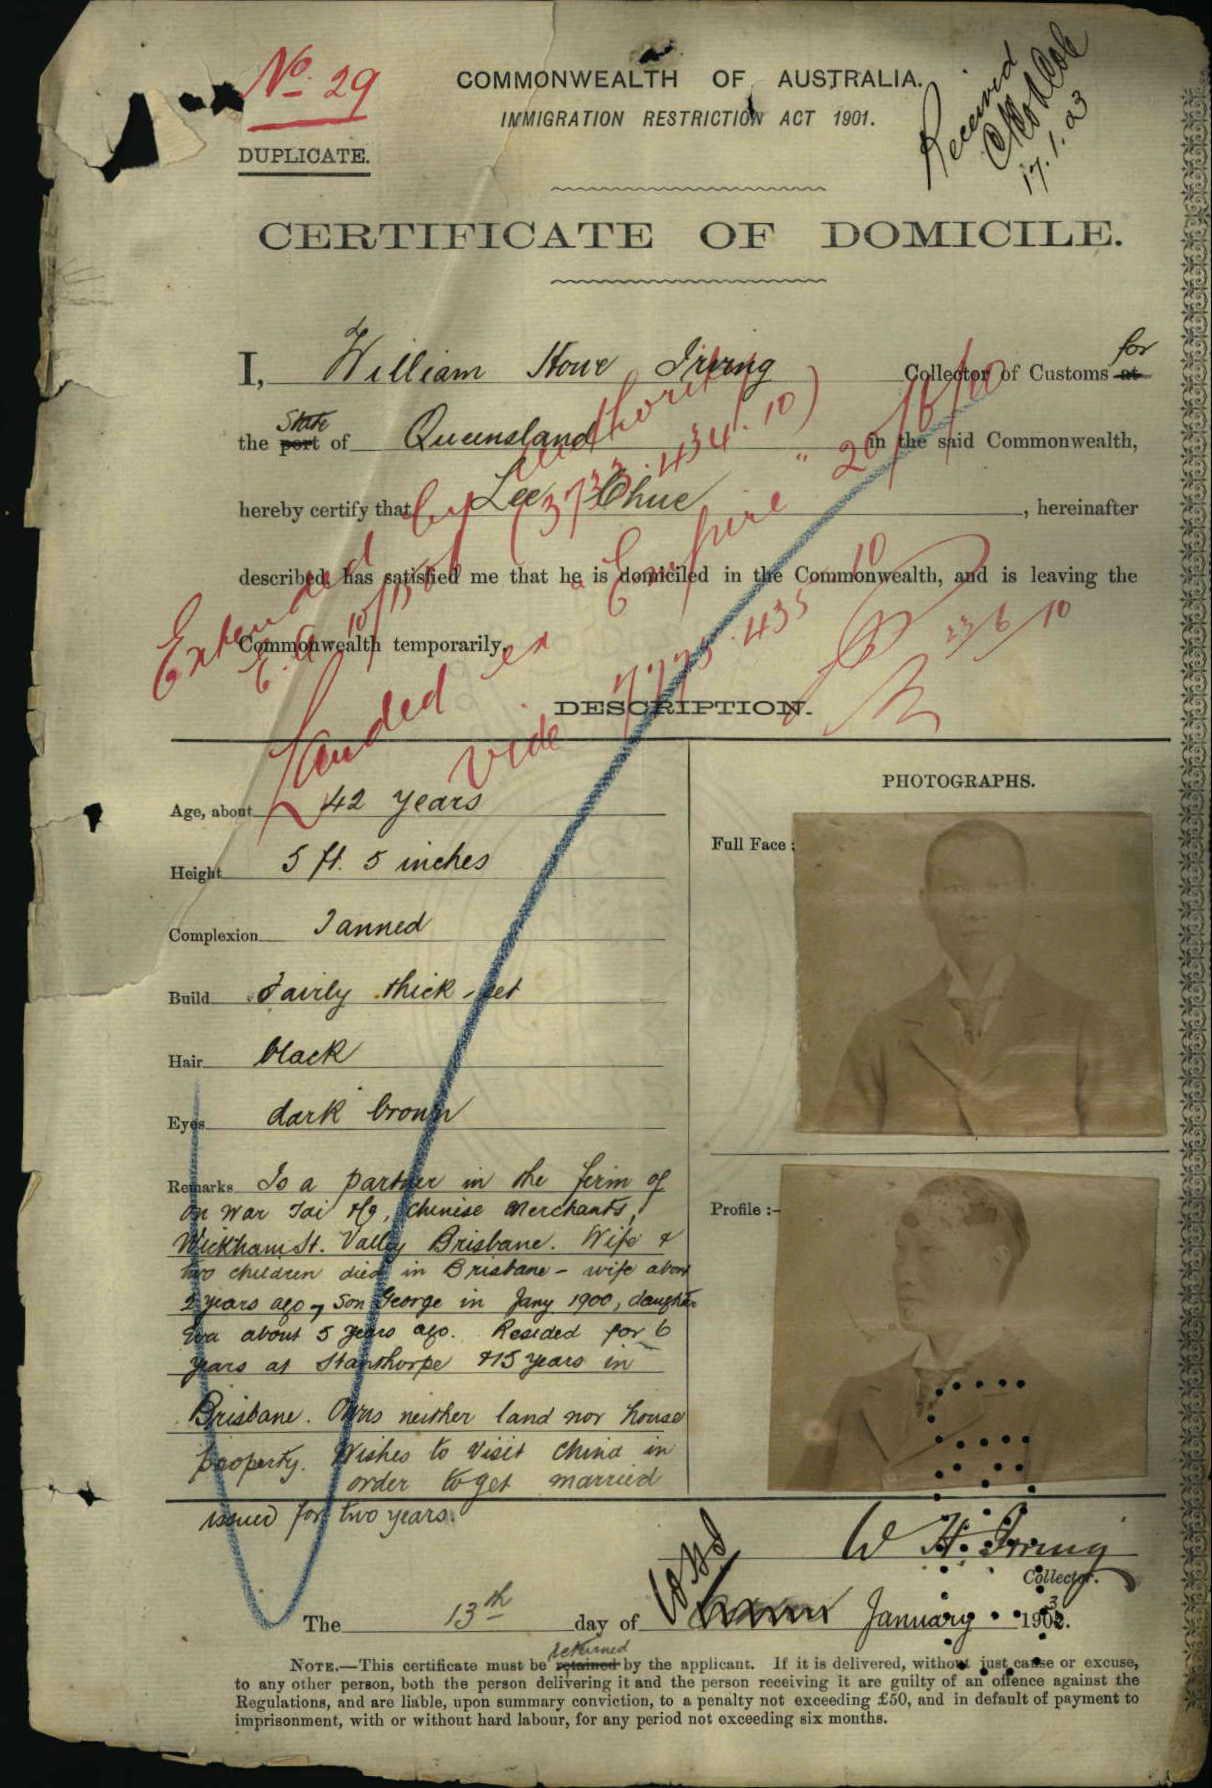 No. 29
COMMONWEALTH OF AUSTRALIA.
IMMIGRATION RESTRICTION ACT 1901.
Received
17.1.03
DUPLICATE.
CERTIFICATE OF DOMICILE.
I, William Howe Irving Collector of Customs at for
the port State of Queensland in the said Commonwealth,
hereby certify that Lee Chue, hereinafter
described, has satisfied me that he is domiciled in the Commonwealth, and is leaving the
Commonwealth temporarily.
Extended by authority
E.A. 10/1506 (3733.434.10)
Landed ex "Empire" 20/6/10
vide 7775.435 10
23/6/10
DESCRIPTION.
Age, about 42 years
Height 5 ft. 5 inches
Complexion Tanned
Build Fairly thick-set
Hair black
Eyes dark brown
Remarks Is a partner in the firm of
On War Tai Hg, Chinese Merchants,
Wickham St. Valley Brisbane. Wife &
two children died in Brisbane - wife about
2 years ago, son George in Jany 1900, daughter
Eva about 5 years ago. Resided for 6
years at Stanthorpe & 15 years in
Brisbane. Owns neither land nor house
property. Wishes to visit China in
order to get married
issued for two years.
PHOTOGRAPHS.
Full Face :
Profile :-
W H Irving
Collector.
The 13th day of January 1903.
NOTE.—This certificate must be retained returned by the applicant. If it is delivered, without just cause or excuse,
to any other person, both the person delivering it and the person receiving it are guilty of an offence against the
Regulations, and are liable, upon summary conviction, to a penalty not exceeding £50, and in default of payment to
imprisonment, with or without hard labour, for any period not exceeding six months.